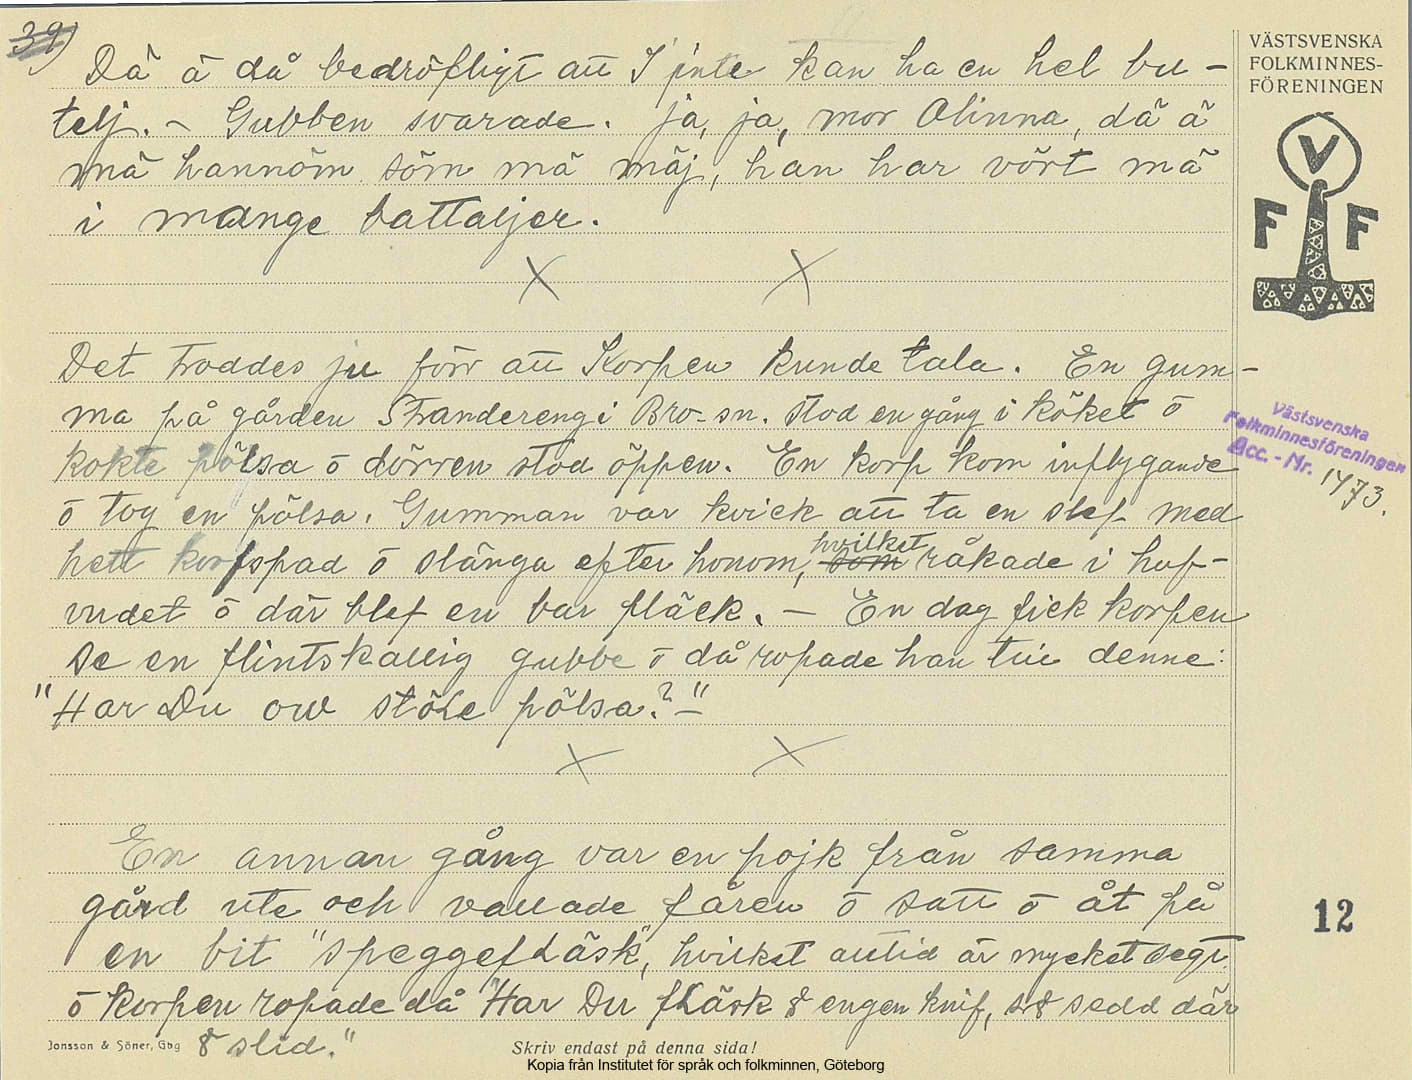 39)
Dä ä då bedröfligt att I inte kan ha en hel bu-
telj. – Gubben svarade. ja, ja, mor Olinna, dä ä
mä hannöm söm mä mäj, han har vört mä
i mange battaljer.
X X
Det troddes ju förr att Korpen kunde tala. En gum-
ma på gården Stranderäng i Bro-sn. stod en gång i köket ō
kokte pölsa ō dörren stod öppen. En korp kom inflygande
ō tog en pölsa. Gumman var kvick att ta en slef med
hett korfspad ō slänga efter honom, hvilket råkade i huf-
vudet ō där blef en bar fläck. – En dag fick korpen
se en flintskallig gubbe ō då ropade han till denne:
"Har Du ow stöle pölsa?" –
X X
En annan gång var en pojk från samma
gård ute och vallade fåren ō satt ō åt på
en bit "speggefläsk", hvilket alltid är mycket segt
ō korpen ropade då "Har Du fläsk & engen knif, så sedd där
& slid."
VÄSTSVENSKA
FOLKMINNES-
FÖRENINGEN
V
F F
Västsvenska
Folkminnesföreningen
Acc. - Nr. 1473.
12
Jonsson & Söner, Gbg
Skriv endast på denna sida!
Kopia från Institutet för språk och folkminnen, Göteborg